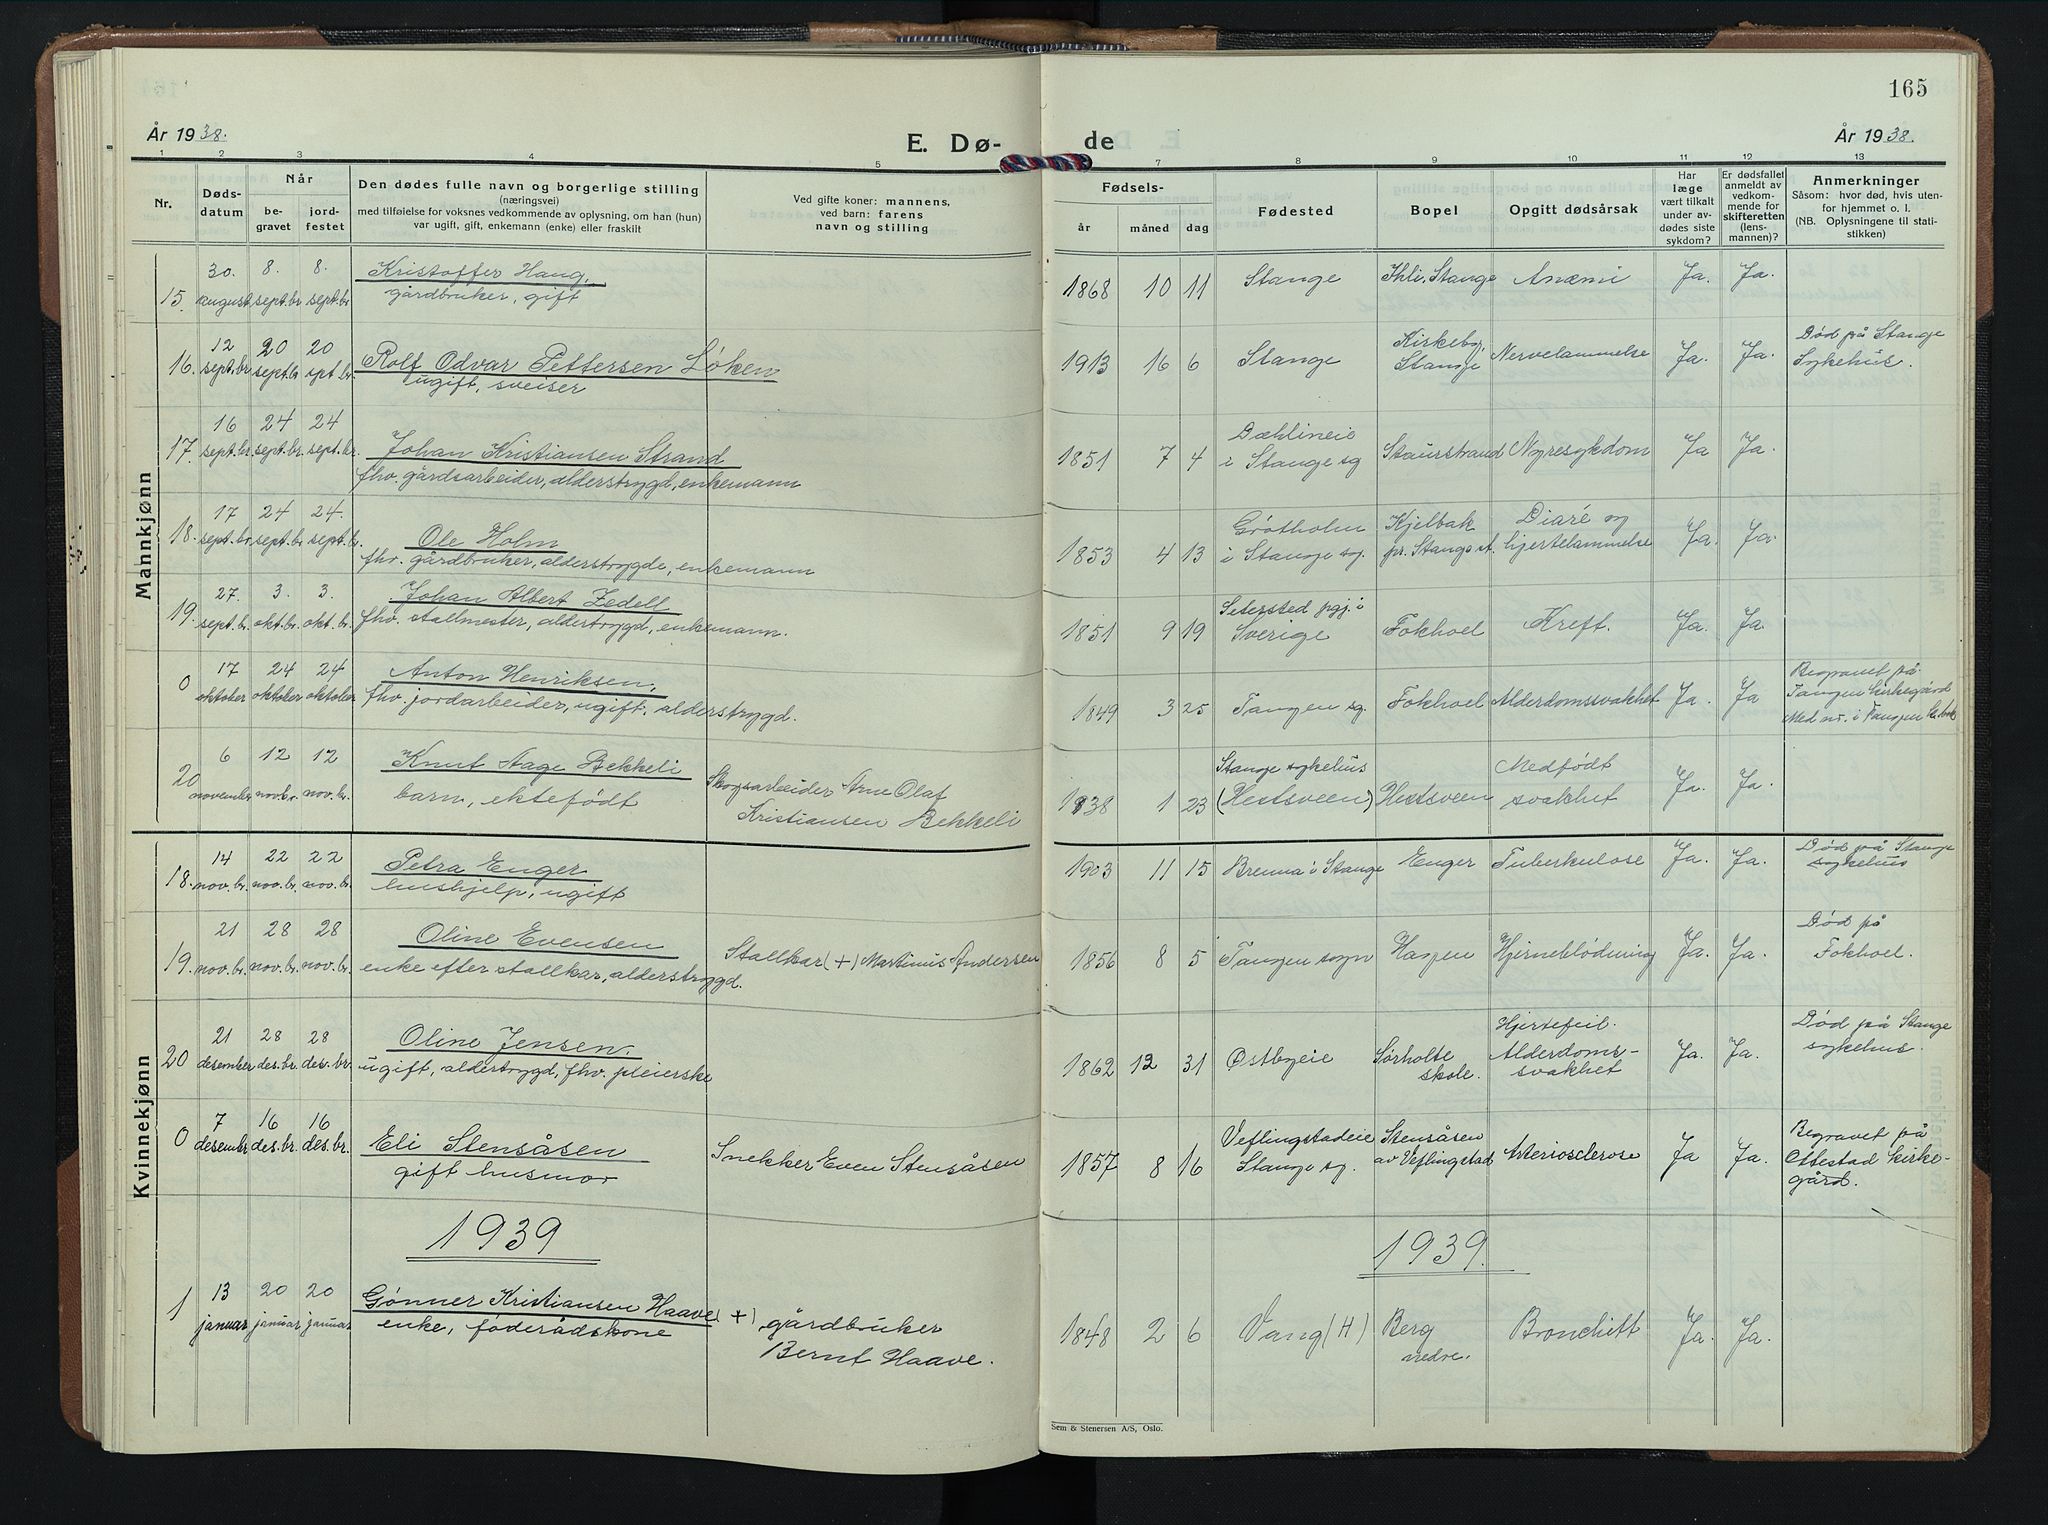 165
År 1938.
E. Dø-
de
År 1938.
1 2 3 4 5 7 8 9 10 11 12 13
Nr.
Døds-
datum
Når
be-
gravet
jord-
festet
Den dødes fulle navn og borgerlige stilling
(næringsvei)
med tilføielse for voksnes vedkommende av oplysning, om han (hun)
var ugift, gift, enkemann (enke) eller fraskilt
Ved gifte koner: mannens,
ved barn: farens
navn og stilling
Fødsels-
år måned dag
Fødested
Bopel
Opgitt dødsårsak
Har
læge
vært tilkalt
under av-
dødes siste
sykdom?
Er dødsfallet
anmeldt av
vedkom-
mende for
skifteretten
(lens-
mannen)?
Anmerkninger
Såsom: hvor død, hvis uten-
for hjemmet o. l.
(NB. Oplysningene til stati-
stikken)
Mannkjønn
30. 8. 8. Kristoffer Haug,
15 august sept.br sept.br gårdbruker, gift
1868 10 11 Stange Ihli, Stange Anæmi Ja. Ja.
12 20 20
16. sept.br sept.br spt.br Rolf Odvar Pettersen Løken
ugift, sveiser
1913 16 6 Stange Kirkebg, Stange Nervelammelse Ja. Ja.
Død på Stange
Sykehus.
16 24 24
17. sept.br sept.br. sept.br. Johan Kristiansen Strand
fhv. gårdsarbeider, alderstrygd, enkemann
Dæhlineie
1851 7 4 i Stange sg Staurstrand Nyresykdom Ja Ja.
17 24 24.
18. sept.br sept.br sept.br. Ole Holm
fhv. gårdbruker, alderstrygde, enkemann
Grøtholm Kjelbak Diaré og
1853 4 13 i Stange sg. pr. Stange st. hjertelammelse Ja. Ja.
27. 3. 3. Johan Albert Zedell
19. sept.br. okt.br. okt.br. fhv. stallmester, alderstrygd, enkemann.
Setersted pgj. i
1851 9 19 Sverige Fokhoel Kreft. Ja. Ja.
17 24 24 Anton Henriksen,
0 oktober oktober oktober fhv. jordarbeider, ugift, alderstrygd.
1849 3 25 Tangen sg. Fokhoel Alderdomssvakhet Ja. Ja
Begravet på
Tangen kirkegård
Med nr. i Tangen k. bok
6 12 12 Knut Stage Bekkeli
20 november nov.br. nov.br. barn, ektefødt
Skogsarbeider Arne Olaf
Kristiansen Bekkeli
Stange sykehus Medfødt
1938 1 23 (Hestsveen) Hestsveen svakhet Ja. Ja.
Kvinnekjønn
14 22 22 Petra Enger
18. nov.br. nov.br. nov.br. hushjelp, ugift
1903 11 15 Brenna i Stange Enger Tuberkulose Ja. Ja.
Død på Stange
sykehus
21 28 28 Oline Evensen
19. nov.br. nov.br. nov.br. enke efter stallkar, alderstrygd.
Stallkar (+) Martinus Andersen
1856 8 5 Tangen sogn Haspen Hjerneblødning Ja. Ja.
Død på
Fokhoel.
21 28 28 Oline Jensen.
20 desember des.br. des.br. ugift, alderstrygd, fhv. pleierske
Hjertefeil.
1862 12 31 Østbyeie Sørholte skole. Alderdoms-
svakhet Ja. Ja.
Død på Stange
sykehus.
7 16 16
0 desember des.br. des.br. Eli Stensåsen
gift husmor
Snekker Even Stensåsen
Veflingstadeie Stensåsen
1857 8 16 Stange sg. av Veflingstad Arteriosclerose Ja Ja.
Begravet på
Ottestad kirke-
gård.
1939
1939.
13 20 20 Gønner Kristiansen Haave (+) gårdbruker
1 januar januar januar enke, føderådskone
Bernt Haave.
1848 2 6 Vang (H) Berg
nedre. Bronchitt Ja. Ja.
Sem & Stenersen A/S, Oslo.